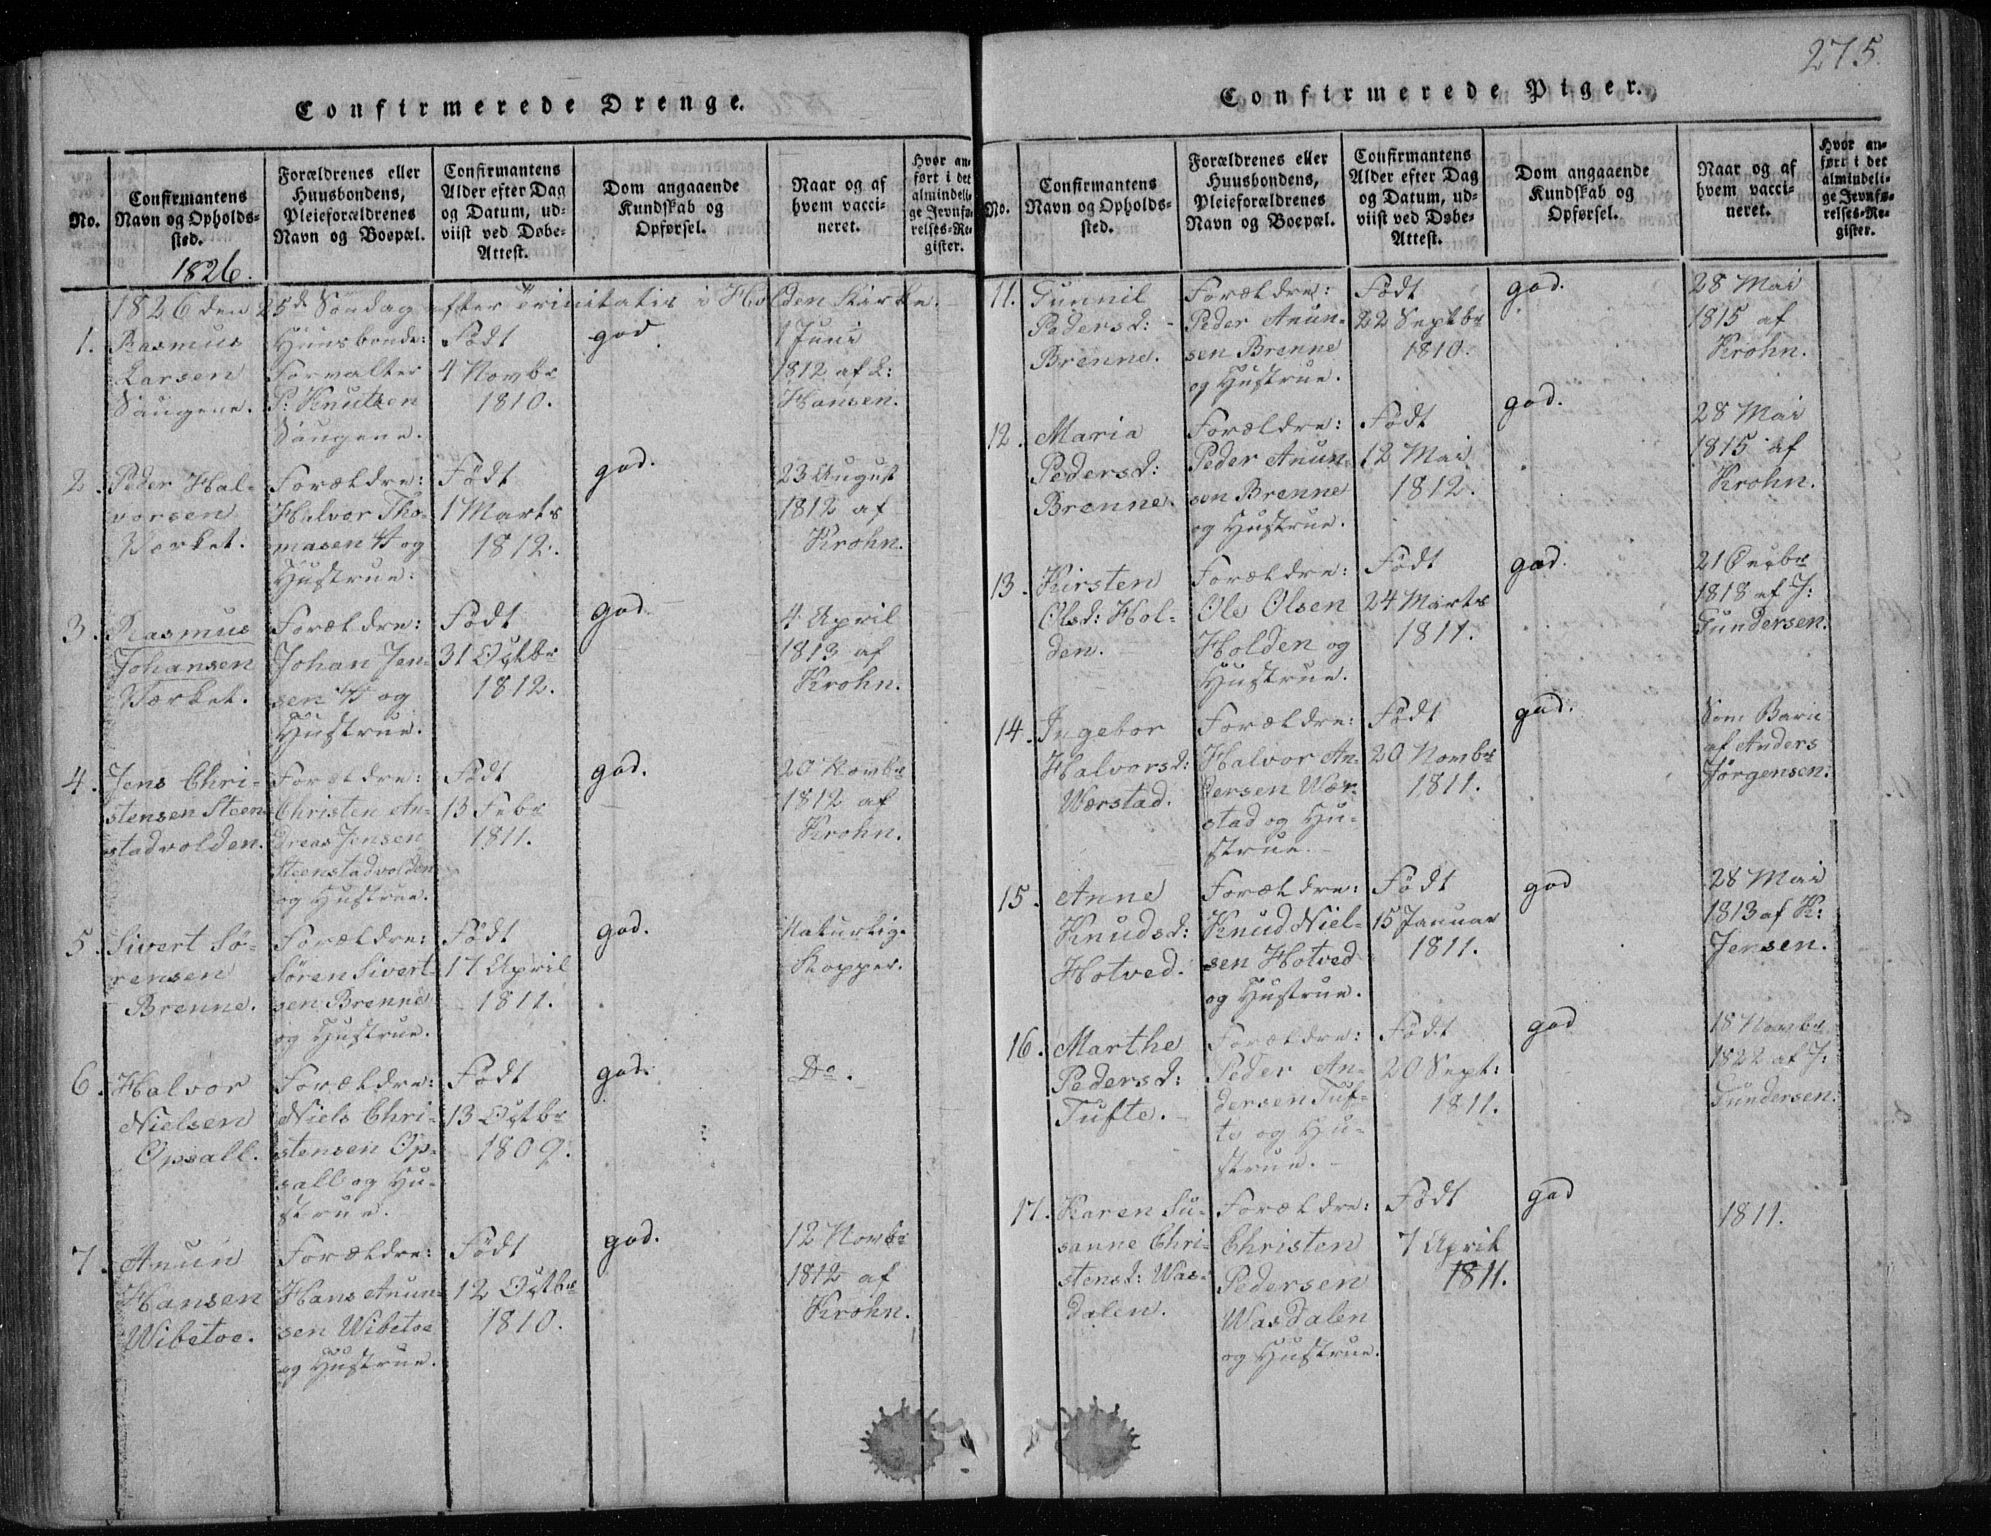 275.
Confirmerede Drenge.
No.
Confirmantens
Navn og Opholds-
sted.
1826.
Forældrenes eller
Huusbondens,
Pleieforældrenes
Navn og Boepæl.
Confirmantens
Alder efter Dag
og Datum, ud-
viist ved Døbe-
Attest.
Dom angaaende
Kundskab og
Opførsel.
Naar og af
hvem vacci-
neret.
Hvor an-
ført i det
almindeli-
ge Jevnfø-
relses-Re-
gister.
1826 den 25de Søndag efter Trinitatis i Holden Kirke.
1. Rasmus
Larsen
Saugene.
Huusbonde:
Forvalter
P: Knutzen
Saugene.
Født
4 Novbr
1810.
god
1 Juni
1812 af L:
Hansen.
2. Peder Hal-
vorsen
Værket.
Forældre:
Halvor Tho-
masen ## og
Hustrue.
Født
1 Marts
1812.
god.
23 August
1812 af
Krohn.
3. Rasmus
Johansen
Værket.
Forældre:
Johan Jen-
sen ## og
Hustrue.
Født
31 Octbr
1812.
god
4 April
1813 af
Krohn.
4. Jens Chri-
stensen Steen-
stadvolden.
Forældre:
Christen An-
dreas Jensen
Steenstadvolden
og Hustrue.
Født
15 Febr
1811.
god.
20 Novbr
1812 af
Krohn.
5. Sivert Sø-
rensen
Brenne.
Forældre:
Søren Sivert-
sen Brenne
og Hustrue.
Født
17 April
1811.
god.
Naturlige
Kopper.
6. Halvor
Nielsen
Opsall.
Forældre:
Niels Chri-
stensen Op-
sall og Hu-
strue.
Født
13 Octbr
1809.
god.
Do.
7. Anun
Hansen
Wibetoe.
Forældre:
Hans Anun-
sen Wibetoe
og Hustrue.
Født
12 Octbr
1810.
god.
12 Novbr
1812 af
Krohn.
Confirmerede Piger.
No.
Confirmantens
Navn og Opholds-
sted.
Forældrenes eller
Huusbondens,
Pleieforældrenes
Navn og Boepæl.
Confirmantens
Alder efter Dag
og Datum, ud-
viist ved Døbe-
Attest.
Dom angaaende
Kundskab og
Opførsel.
Naar og af
hvem vacci-
neret.
Hvor an-
ført i det
almindeli-
ge Jevnfø-
relses-Re-
gister.
11. Gunnil
Pedersd:
Brenne.
Forældre:
Peder Anun-
sen Brenne
og Hustrue.
Født
22 Septbr
1810.
god.
28 Mai
1815 af
Krohn.
12. Maria
Pedersd:
Brenne.
Forældre:
Peder Anun-
sen Brenne
og Hustrue.
Født
12 Mai
1812.
god.
28 Mai
1815 af
Krohn.
13. Kirsten
Olsd: Hol-
den.
Forældre:
Ole Olsen
Holden og
Hustrue.
Født
24 Marts
1811.
god.
21
1818 af J:
Gundersen.
14. Ingebor
Halvorsd:
Wærstad.
Forældre:
Halvor An-
dersen Wær-
stad og Hu-
strue.
Født
20 Novbr
1811.
god.
Som Barn
af Anders
Jørgensen.
15. Anne
Knudsd:
Hotved.
Forældre:
Knud Niel-
sen Hotved
og Hustrue.
Født
15 Januar
1811.
god
28 Mai
1813 af K:
Jensen.
16. Marthe
Pedersd:
Tufte.
Forældre:
Peder An-
dersen Tuf-
te og Hu-
strue.
Født
20 Sept:
1811.
god
18 Novbr
1822 af J:
Gundersen.
17. Karen Su-
sanne Chri-
stensd: Was-
dalen.
Forældre:
Christen
Pedersen
Wasdalen
og Hustrue.
Født
7 April
1811.
god
1811.